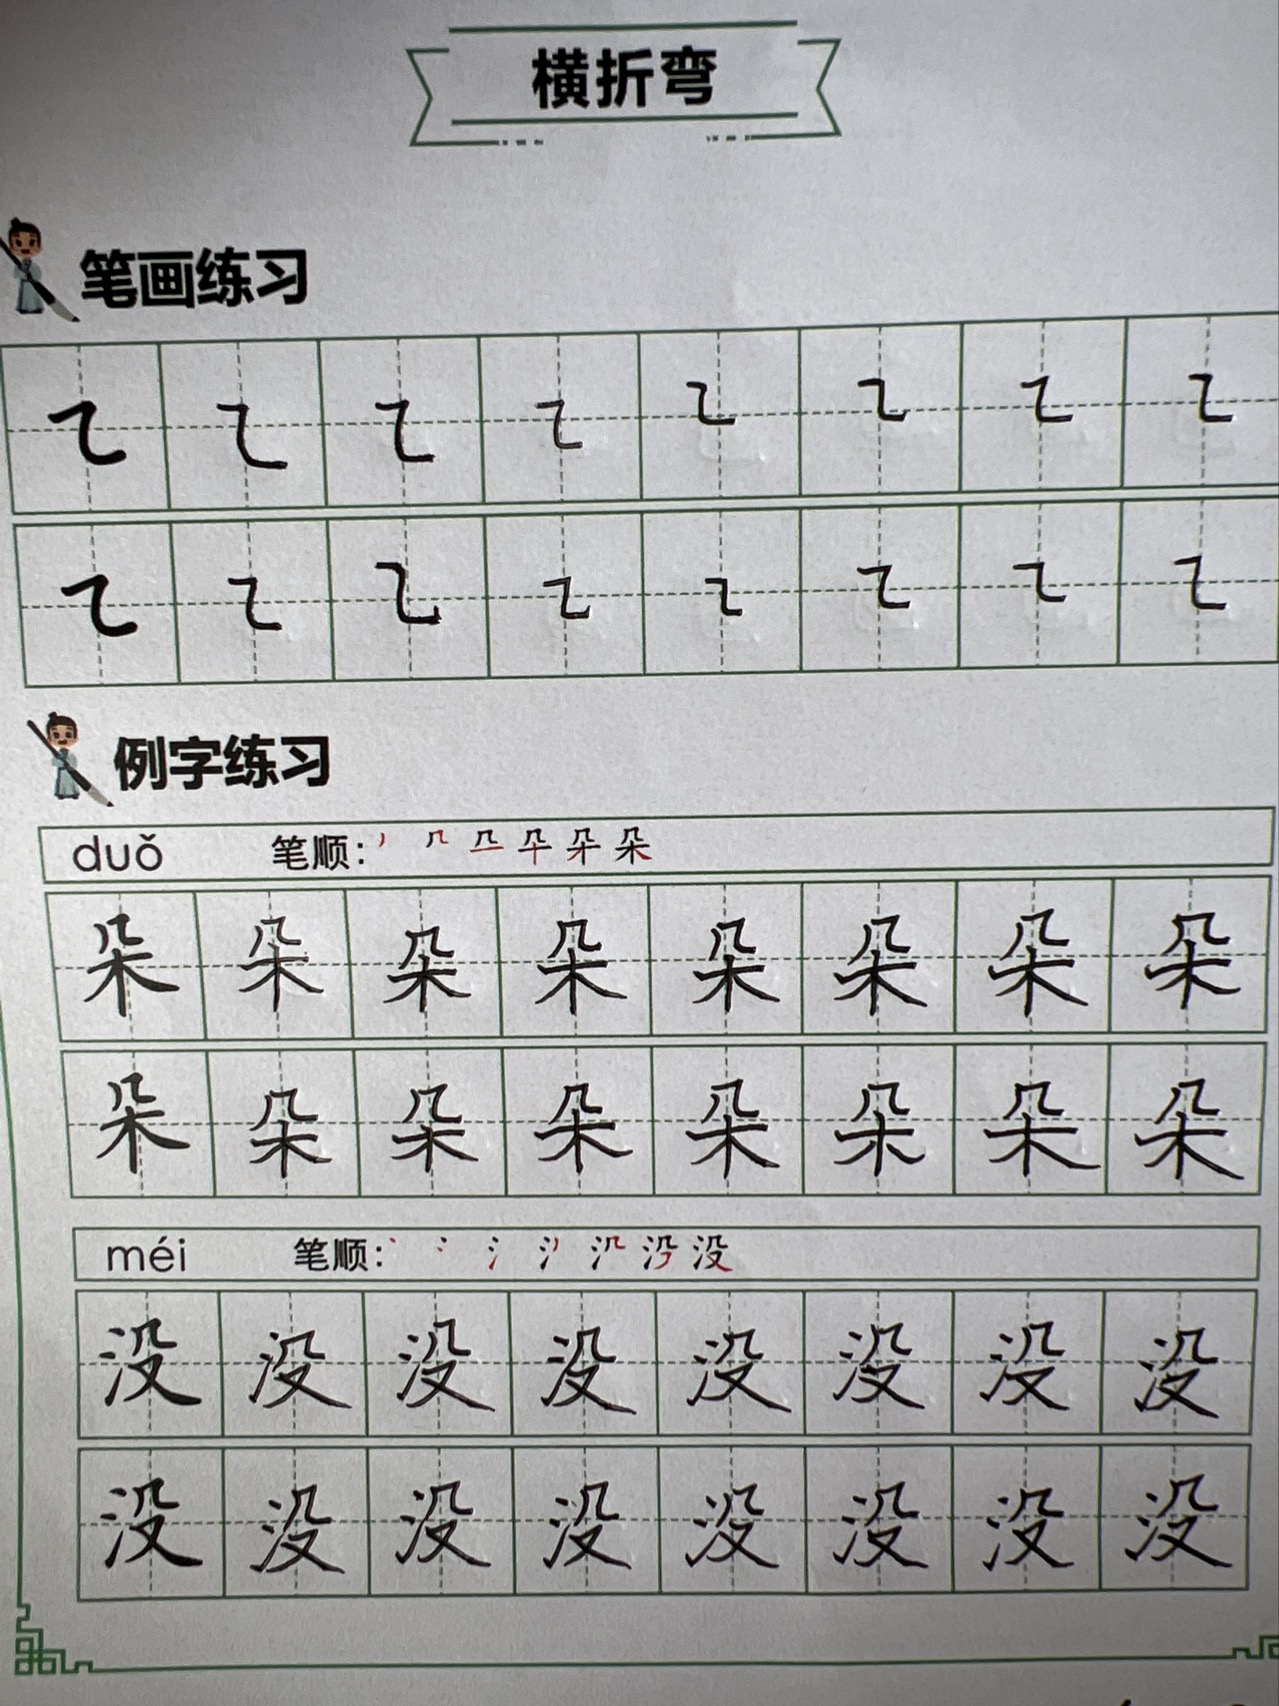 横折弯
笔画练习
㇍ ㇍ ㇍ ㇍ ㇍ ㇍ ㇍ ㇍
㇍ ㇍ ㇍ ㇍ ㇍ ㇍ ㇍ ㇍
例字练习
duǒ 笔顺:
朵 朵 朵 朵 朵 朵 朵 朵
朵 朵 朵 朵 朵 朵 朵 朵
méi 笔顺:
没 没 没 没 没 没 没 没
没 没 没 没 没 没 没 没